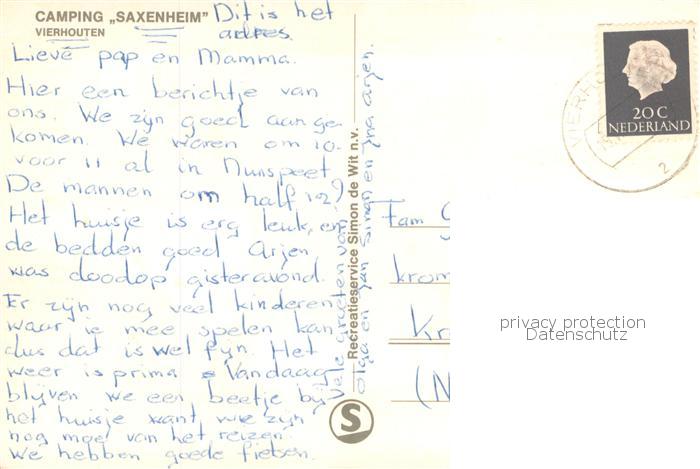 CAMPING „SAXENHEIM"
VIERHOUTEN
Dit is het
adres.
Lieve pap en Mamma.
Hier een berichtje van
ons. We zijn goed aange-
komen. We waren om 10
voor 11 al in Nunspeet
De mannen om half 12?
Het huisje is erg leuk, en
de bedden goed Arjen
was doodop gisteravond.
Er zijn nog veel kinderen
waar ie mee spelen kan
dus dat is wel fijn. Het
weer is prima. Vandaag
blijven we een beetje bij
het huisje want we zijn
nog moe van het reizen.
We hebben goede fietsen.
Vele groeten van
Olga en Jan Siman en Ina arjen.
Recreatieservice Simon de Wit n.v.
S
20 C
NEDERLAND
VIERHO
2
Fam
krom
Kr
(N
privacy protection
Datenschutz